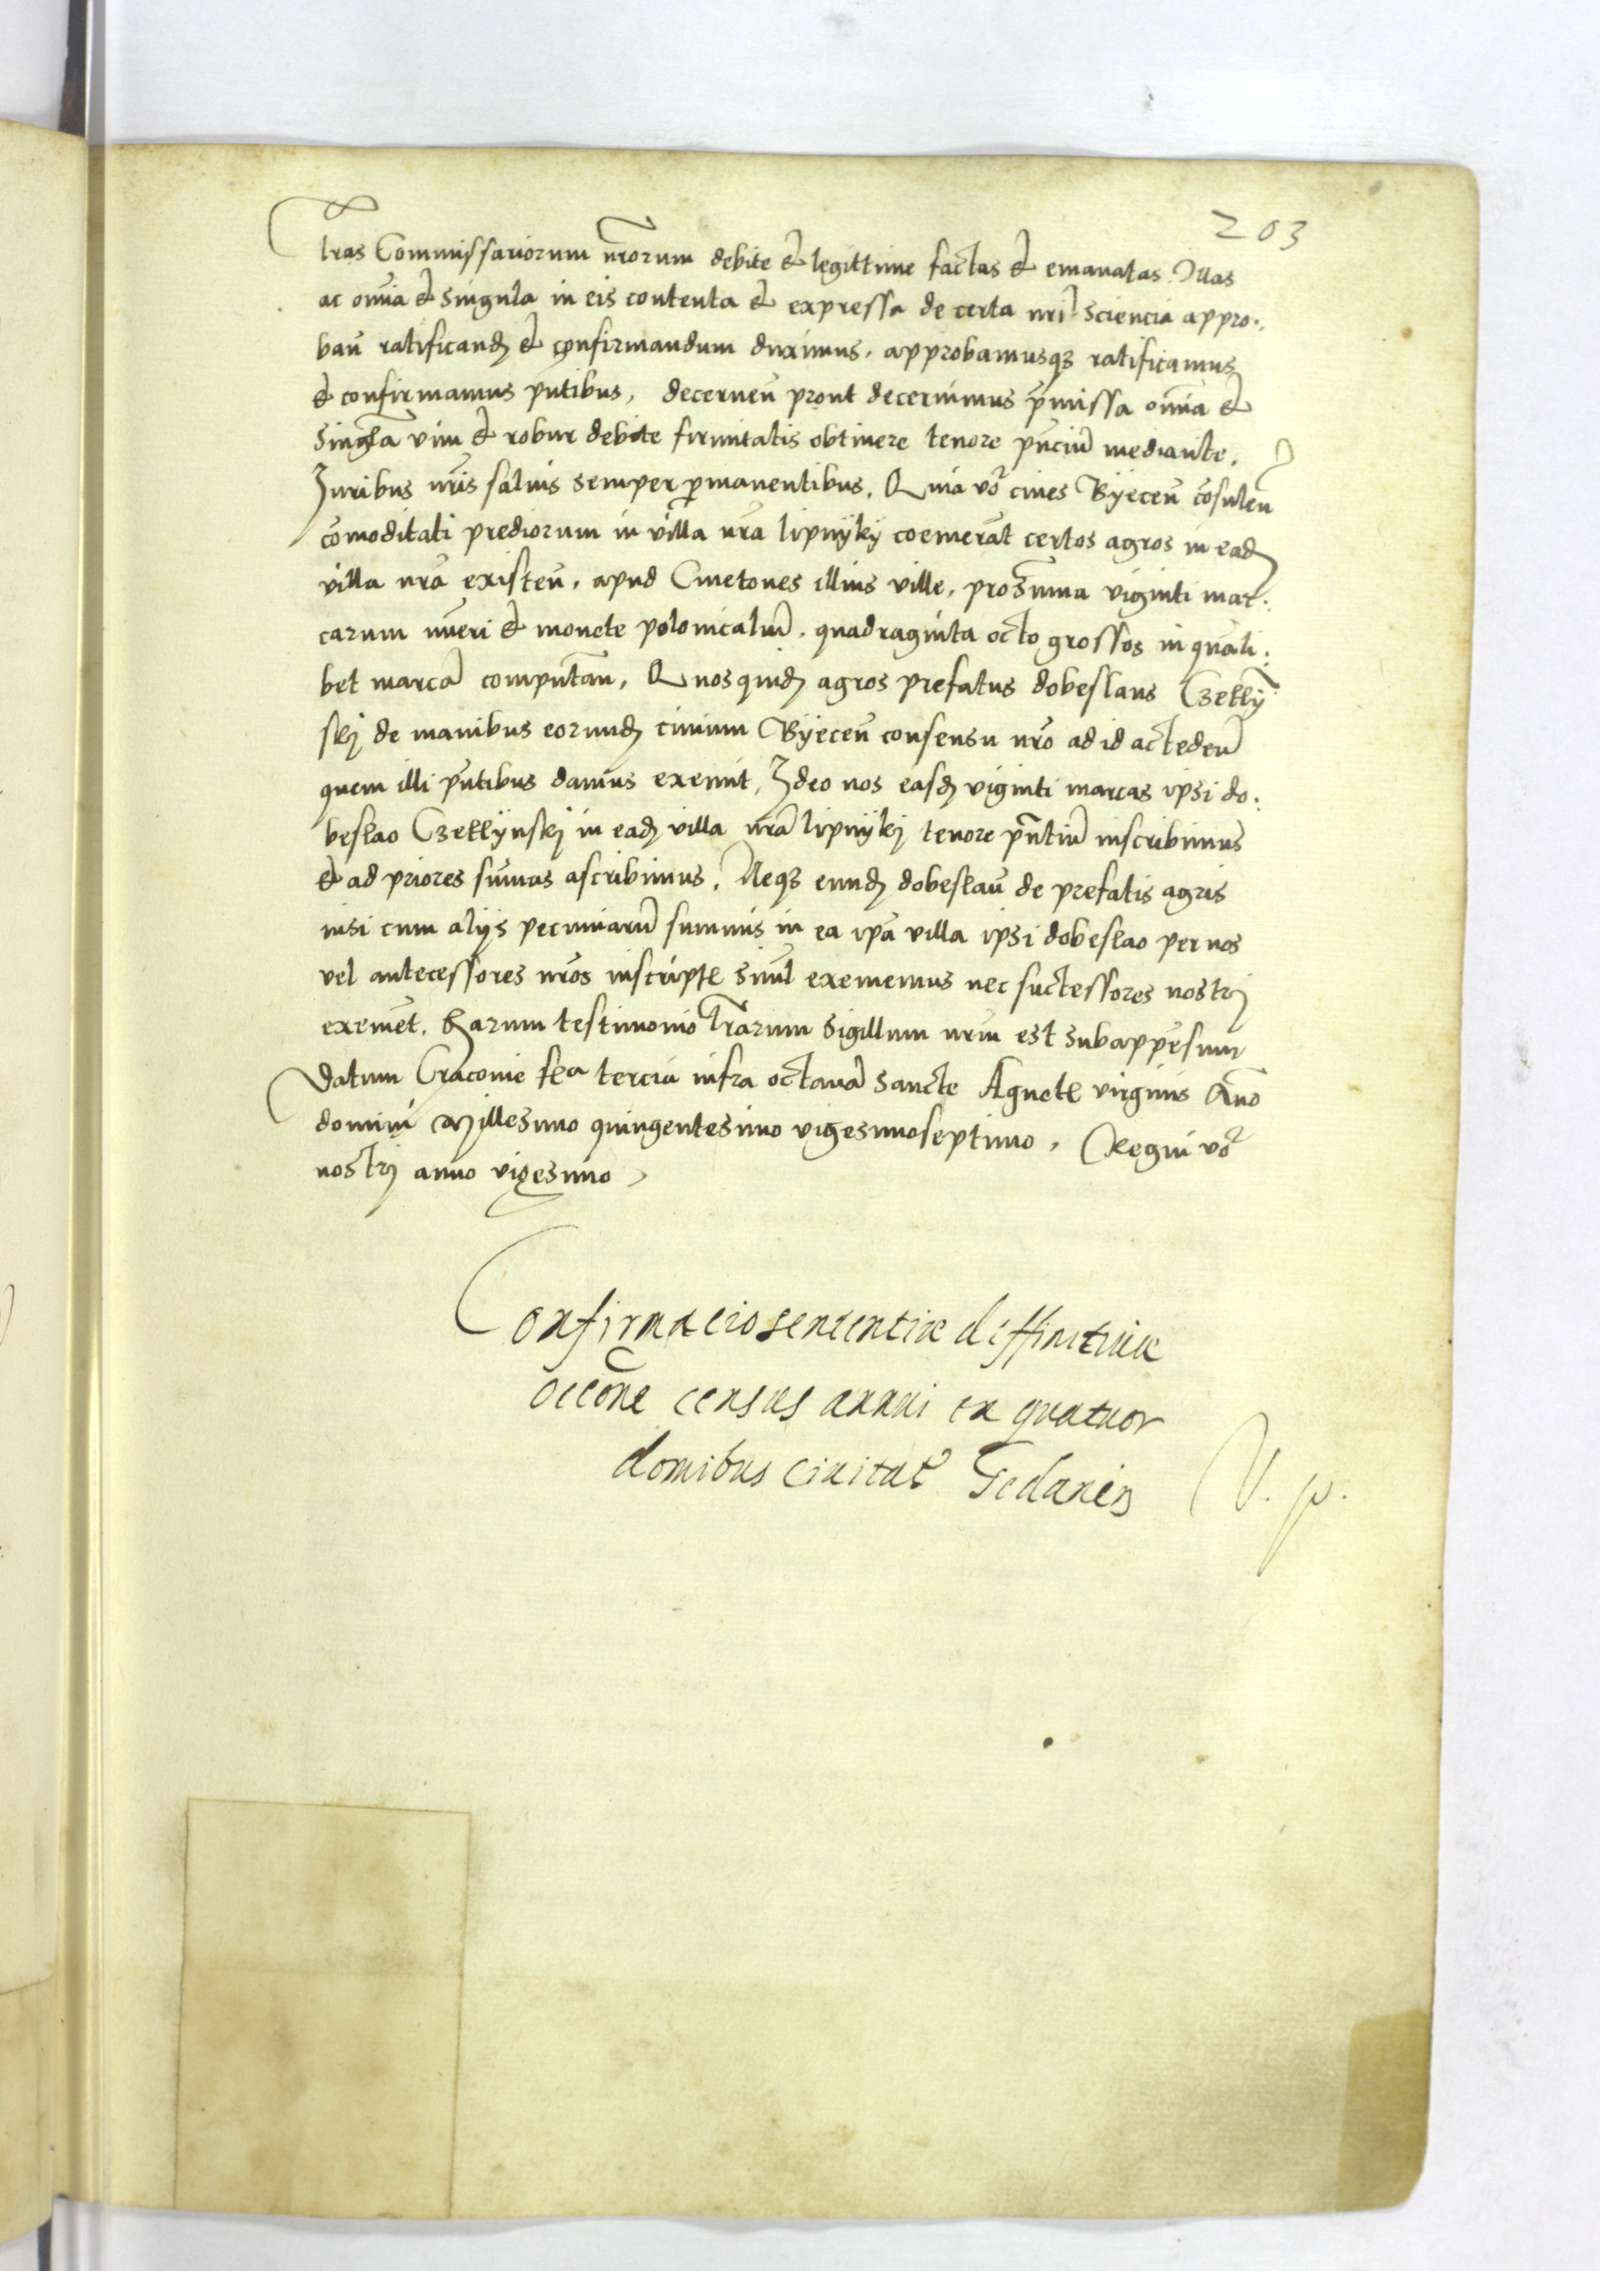 203
lras Commissariorum nrorum debite et legittime factas et emanatas. Illas
ac omia et singula in eis contenta et expressa de certa nri sciencia appro.,
ban ratificand et confirmandum duximus, approbamusq3 ratificamus
et confirmamus pntibus, decernen prout decernimus pmissa omia et
singla vim et robur debite firmitatis obtinere tenore pnciu mediante.
Iuribus nris salvis semper pmanentibus. Quia vo cives Byecen cosulen
comoditati prediorum in villa nra lipnyky coemerat certos agros in ead
villa nra existen, apud Cmetones illius ville, pro summa viginti mar:
carum nueri et monete polonicaliu, quadraginta octo grossos in quali:
bet marca computan, Quos quid agros prefatus dobeslaus Czekly
skj de manibus eorund civium Byecen consensu nro ad id acceden
quem illi pntibus damus exemit, Ideo nos easd viginti marcas ipsi do:
beslao Czeklynskj in ead villa nra lipnykj tenore pntiu inscribimus
et ad priores sumas ascribimus. Neq3 eund dobeslau de prefatis agris
nisi cum alijs pecuniaru summis in ea ipa villa ipsi dobeslao per nos
vel antecessores nros inscripte simul exememus nec successores nostrj
exemet. Harum testimonio lrarum sigillum nrm est subappesum
Datum Cracovie fea tercia infra octava sancte Agnete virginis Ano
domini Millesimo quingentesimo vigesimoseptimo, Regni vo
nostrj anno vigesimo
Confirmacio sententiæ diffinitiuæ
occone census annui ex quatuor
domibus ciuitat Gedanen V. p.